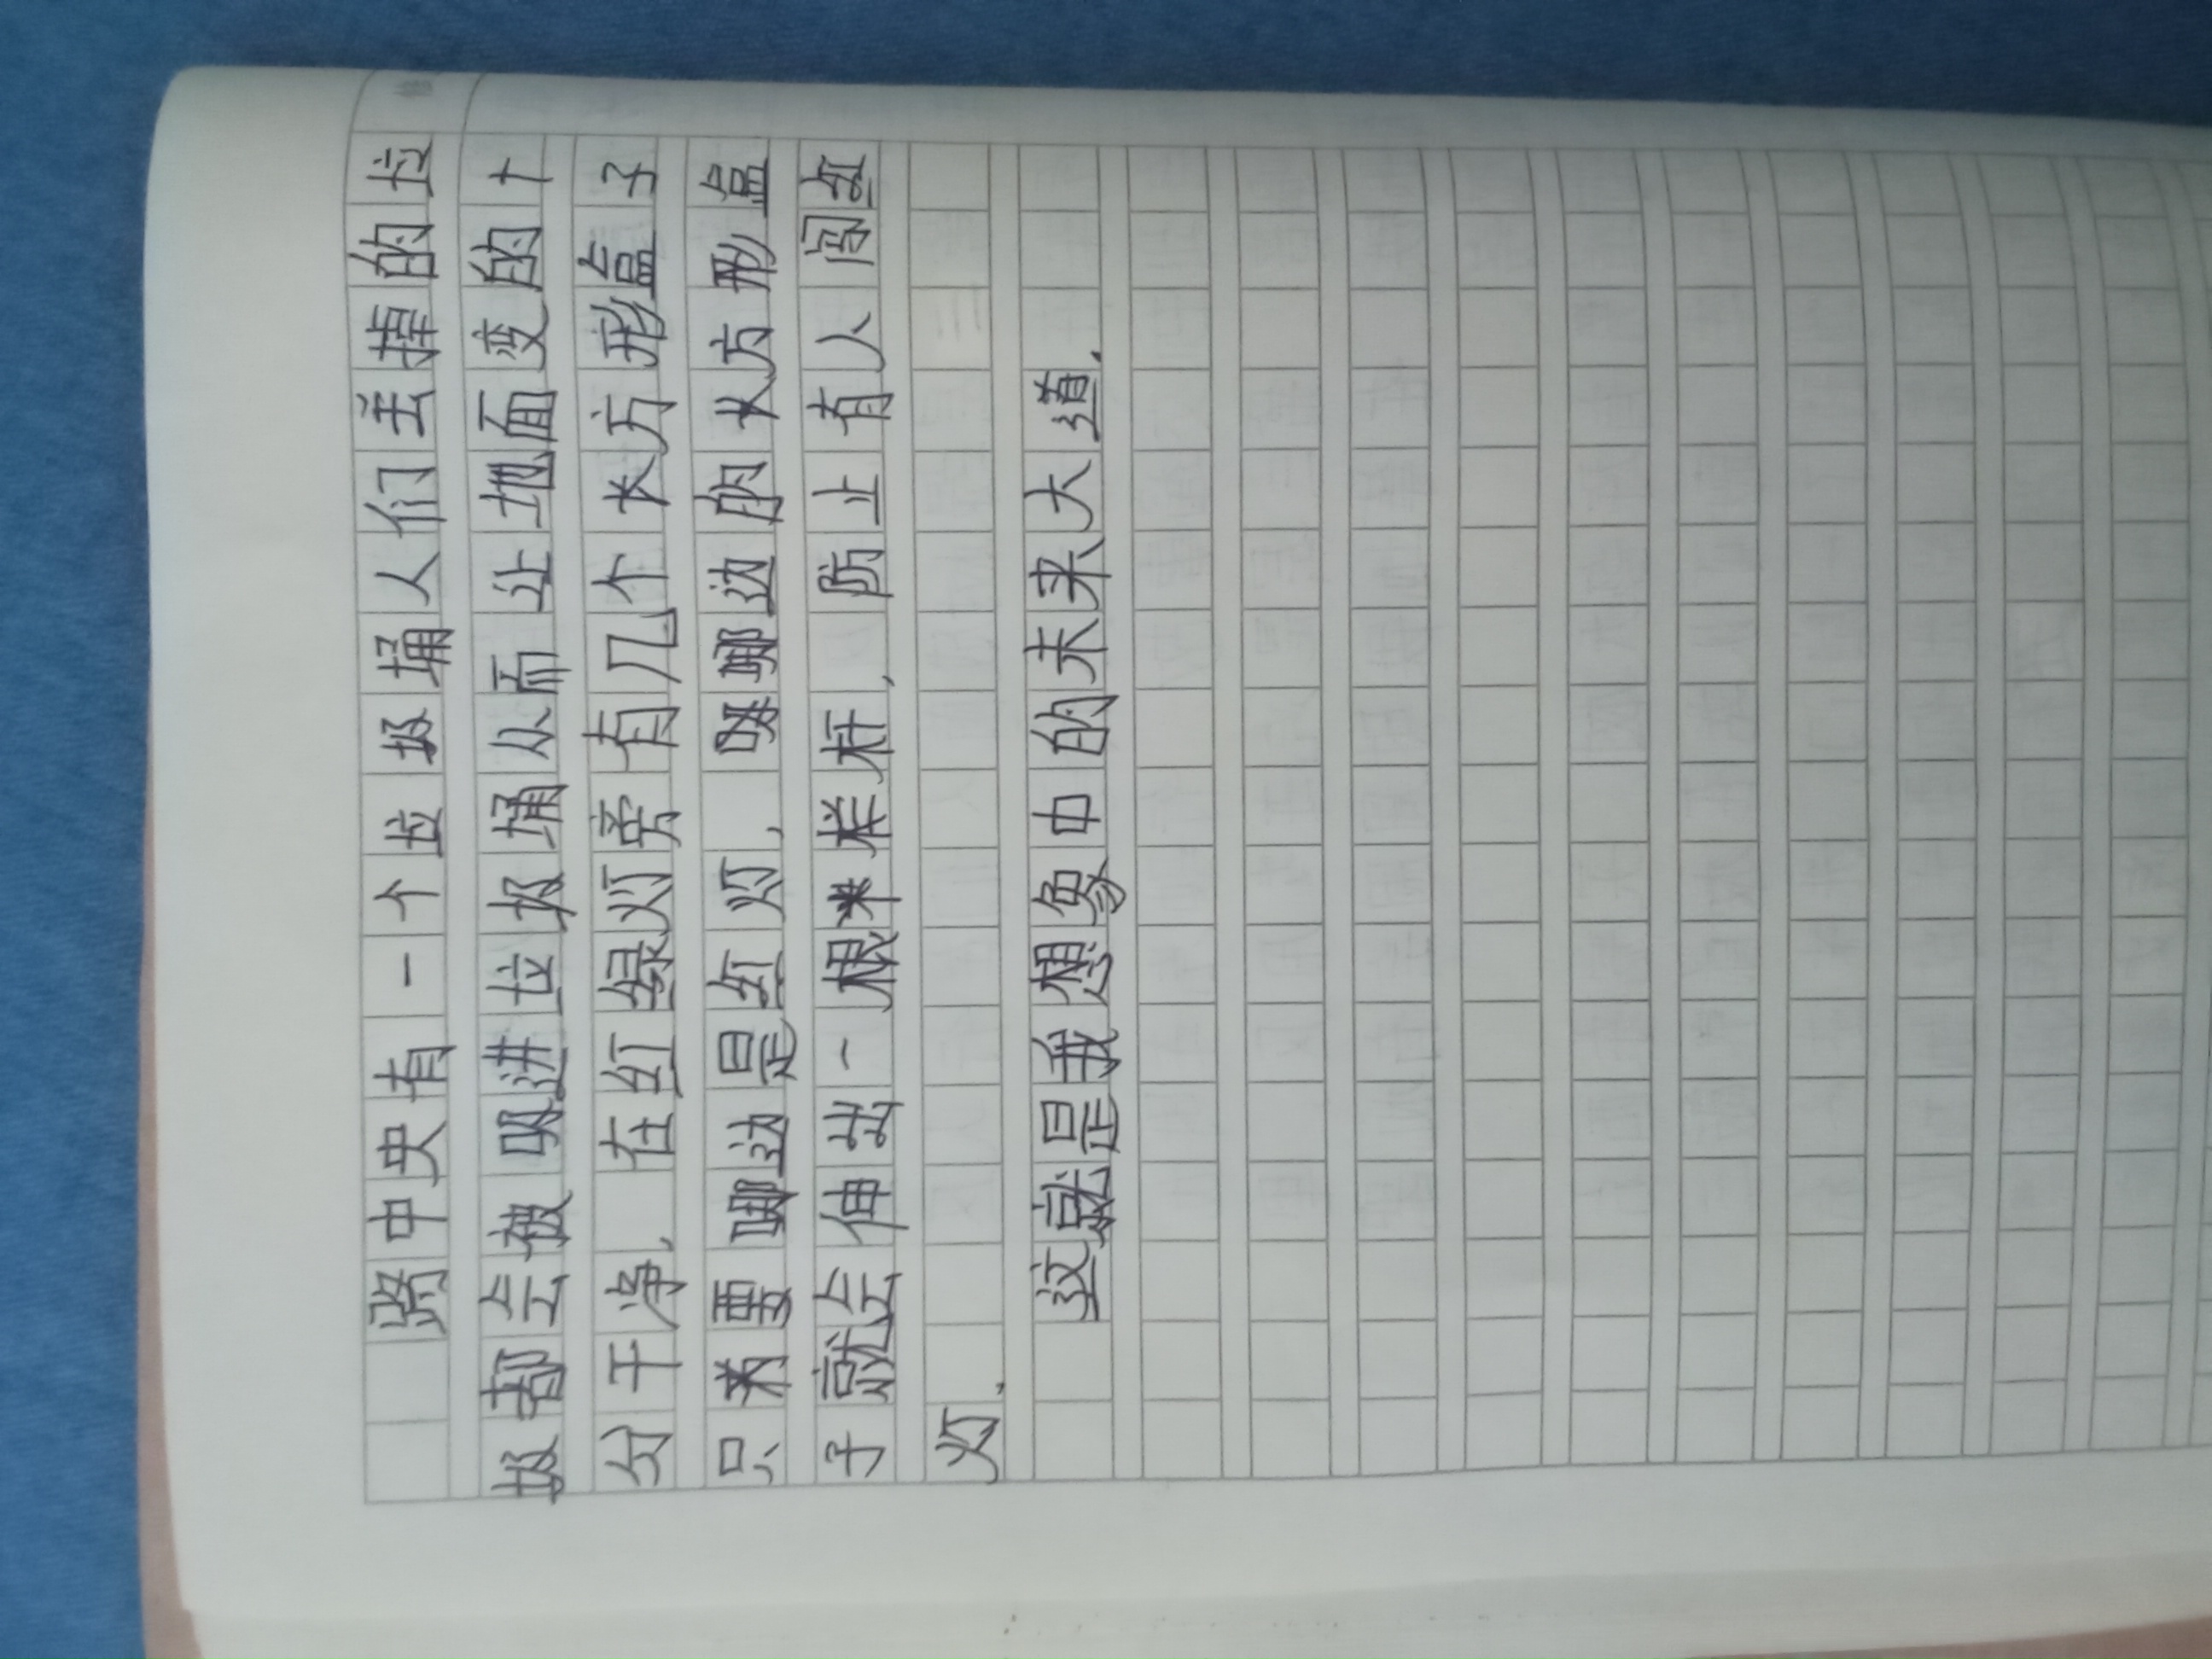 路中央有一个垃圾埇人们丢掉的垃
圾都会被吸进垃圾埇从而让地面变的十
分干净，在红绿灯旁有几个长方形盒子
只要哪边是红灯，哪边的长方形盒
子就会伸出一根栏杆，防止有人闯红
灯。
这就是我想象中的未来大道。